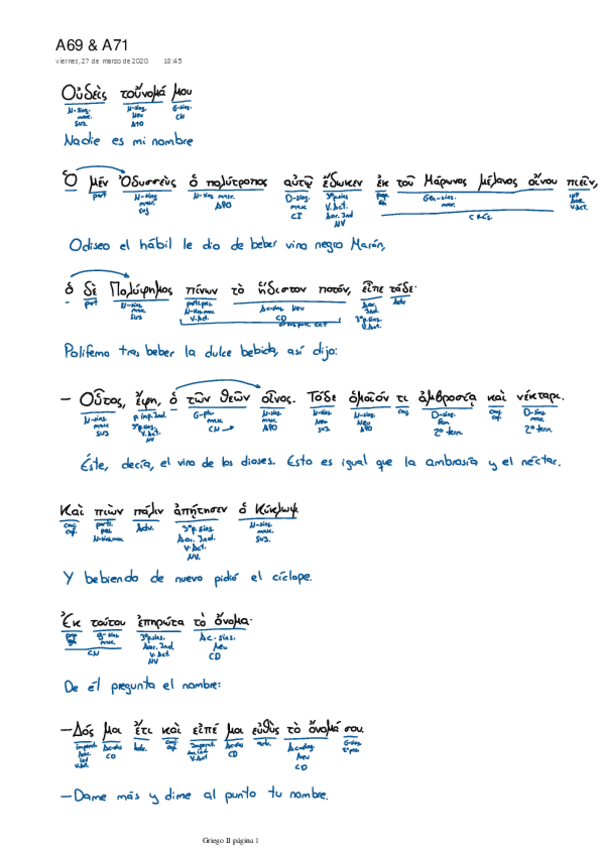 A69 & A71
viernes, 27 de marzo de 2020 18:45
Οὐδεὶς τοὔνομά μου
N-sing. N-sing. G-sing.
masc. Neu CN
SUJ. ATO
Nadie es mi nombre
Ὁ μέν Ὀδυσσεὺς ὁ πολύτροπος αὐτῷ ἔδωκεν ἐκ τοῦ Μάρωνος μέλανος οἴνου πιεῖν,
part N-sing N-sing masc. D-sing 3ªp.sing Gen-sing.
masc. APO masc V.Act. masc.
SUJ CI Aor. Ind V.Act.
NV
Odiseo el hábil le dio de beber vino negro Marón,
ὁ δὲ Πολύφημος πίνων τὸ ἥδιστον ποτόν, εἶπε τάδε·
part N-sing Ac-sing Neu Aor. Adv
masc. N-sing masc CD Ind.
SUJ V.Act 3ªp.sing
V.Act.
Polifemo tras beber la dulce bebida, así dijo:
– Οὗτος, ἔφη, ὁ τῶν θεῶν οἶνος. Τόδε ὁμοῖόν τι ἀμβροσίᾳ καὶ νέκταρι.
N-sing p.imp.Ind G-plu N-sing N-sing N-sing conj D-sing conj D-sing
masc 3ªp.sing masc. masc. Neu Neu Fem masc
SUJ V.Act CN APO SUJ ATO 2º term 2º term
NV
Éste, decía, el vino de los dioses. Esto es igual que la ambrosía y el néctar.
Καὶ πιὼν πάλιν ἀπῄτησεν ὁ Κύκλωψ
conj parti. Adv. 3ªp.sing N-sing.
Aor. Ind masc.
N-sing.masc V.Act. SUJ.
NV.
Y bebiendo de nuevo pidió el cíclope.
Ἐκ τούτου ἐπηρώτα τὸ ὄνομα·
G-sing 3ªp.sing. Ac-sing.
masc. Aor. Ind Neu
CN V.Act CD
NV
De él pregunta el nombre:
–Δός μοι ἔτι καὶ εἰπέ μοι εὐθὺς τὸ ὄνομά σου.
Adv. conj adv. Ac-sing G-sing
Aor. CD CD Neu
V.Act CD
–Dame más y dime al punto tu nombre.
Griego II página 1